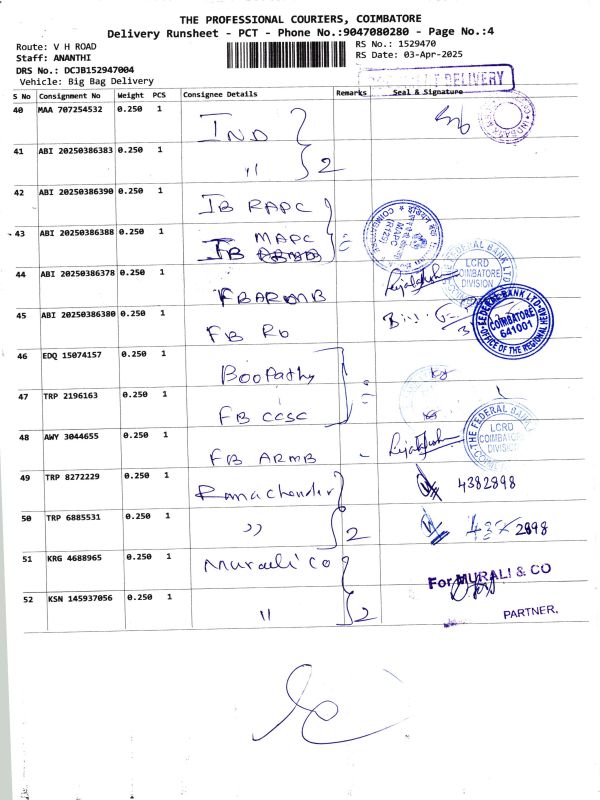 THE PROFESSIONAL COURIERS, COIMBATORE
Delivery Runsheet - PCT - Phone No.:9047080280 - Page No.:4
Route: V H ROAD
RS No.: 1529470
Staff: ANANTHI
RS Date: 03-Apr-2025
DRS No.: DCJB152947004
Vehicle: Big Bag Delivery
DELIVERY
S No Consignment No Weight PCS Consignee Details Remarks Seal & Signature
40 MAA 707254532 0.250 1 IND
41 ABI 20250386383 0.250 1 " 2
42 ABI 20250386390 0.250 1 IB RAPC
43 ABI 20250386388 0.250 1 IB MAPC
44 ABI 20250386378 0.250 1 FBARMB
LCRD
COIMBATORE
DIVISION
45 ABI 20250386380 0.250 1 FB Ro
FEDERAL BANK LTD
COIMBATORE
641001
OFFICE OF THE REGIONAL HEAD
46 EDQ 15074157 0.250 1 Boopathy
47 TRP 2196163 0.250 1 FB CCSC
48 AWY 3044655 0.250 1 FB ARMB
THE FEDERAL BANK
LCRD
COIMBATORE
DIVISION
49 TRP 8272229 0.250 1 Ramachender 4382898
50 TRP 6885531 0.250 1 " 2 2898
51 KRG 4688965 0.250 1 Murali co
For MURALI & CO
52 KSN 145937056 0.250 1 " 2
PARTNER.